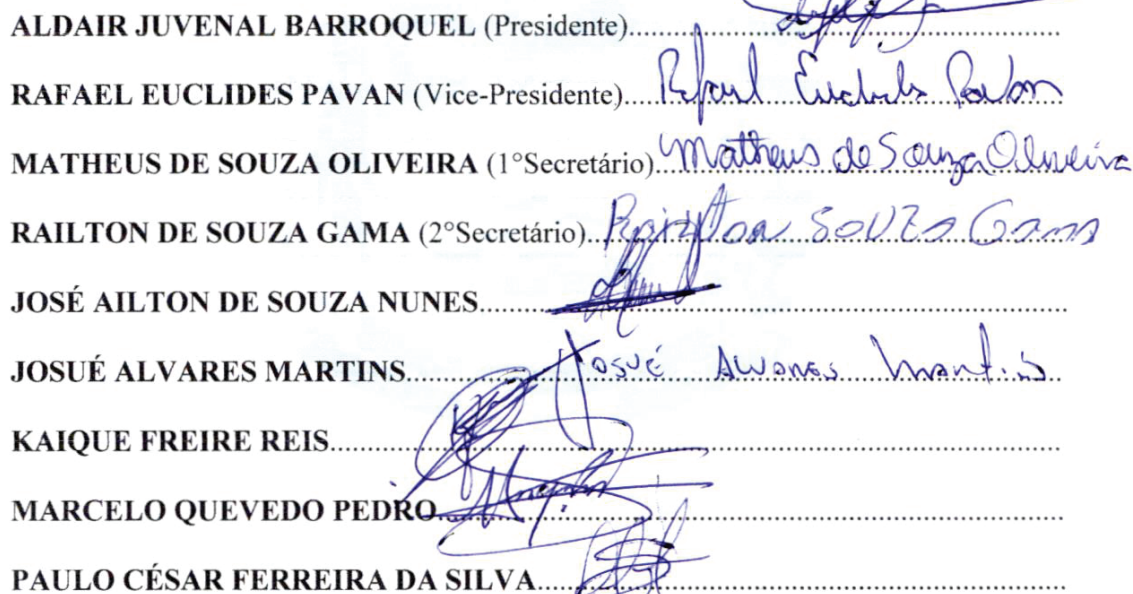 ALDAIR JUVENAL BARROQUEL (Presidente)
RAFAEL EUCLIDES PAVAN (Vice-Presidente) Rafael Euclides Pavan
MATHEUS DE SOUZA OLIVEIRA (1°Secretário) Matheus de Souza Oliveira
RAILTON DE SOUZA GAMA (2°Secretário) Railton SOUZA Gama
JOSÉ AILTON DE SOUZA NUNES
JOSUÉ ALVARES MARTINS JOSUÉ Alvares Martins
KAIQUE FREIRE REIS
MARCELO QUEVEDO PEDRO
PAULO CÉSAR FERREIRA DA SILVA